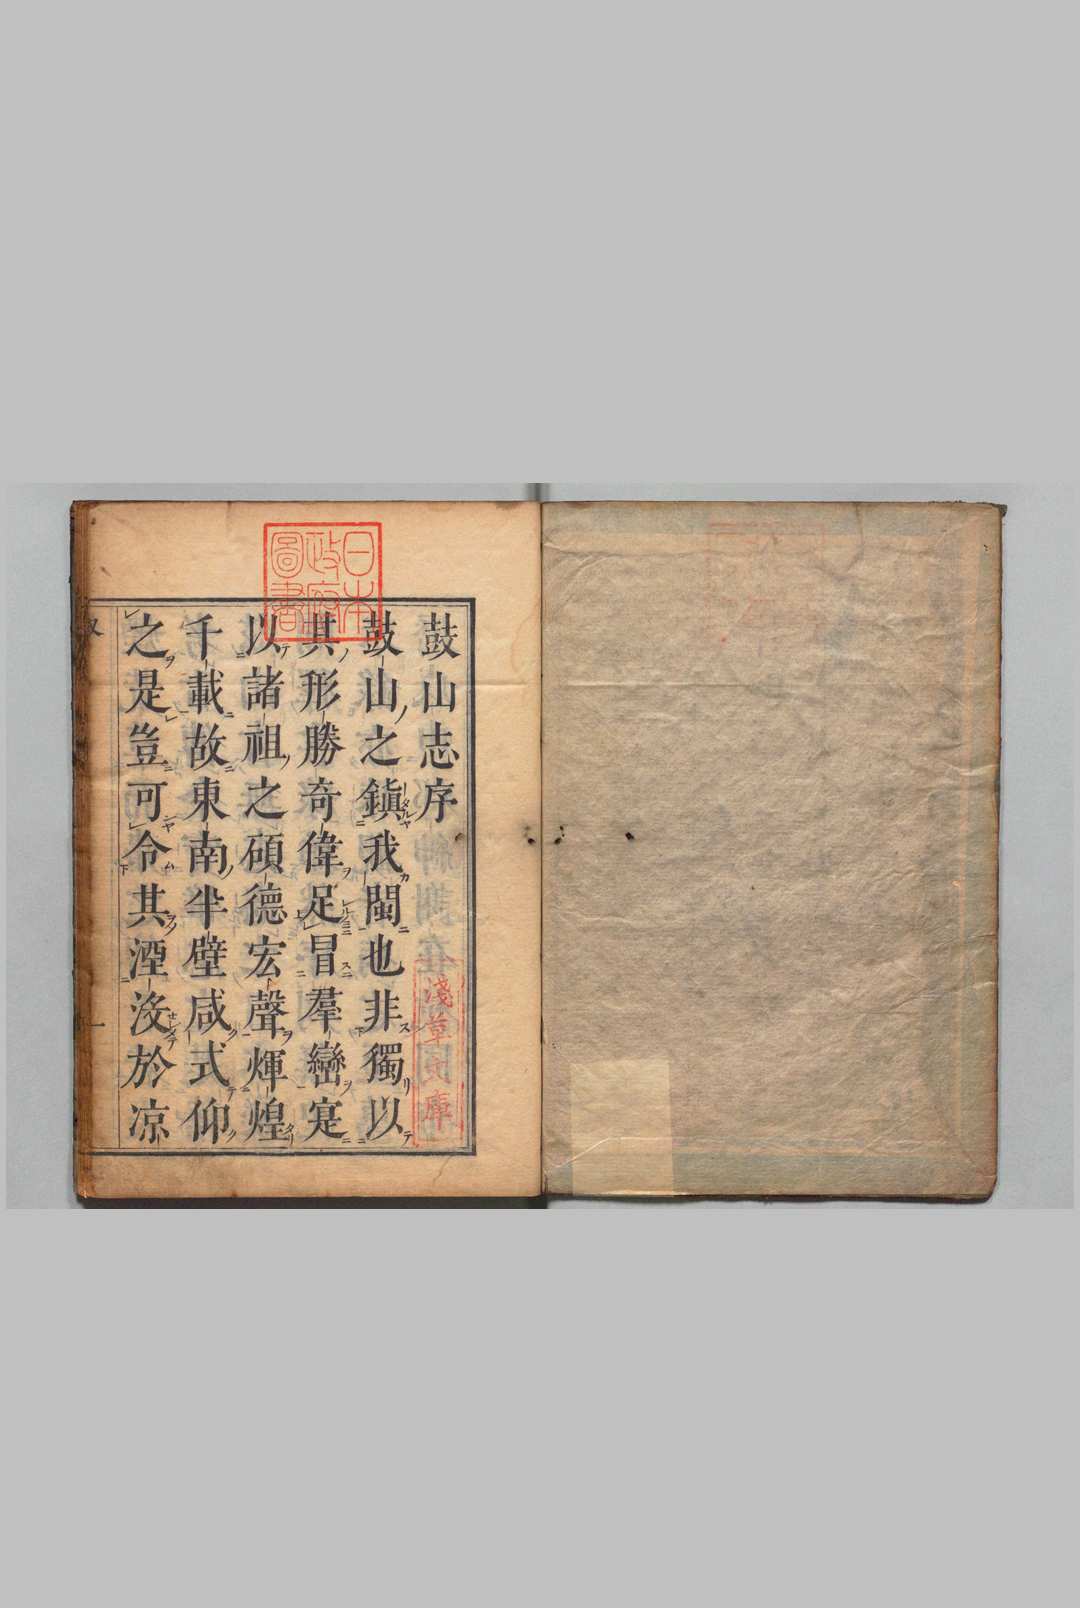 鼓山志序
鼓山之鎮我閩也非獨以
其形勝奇偉足冒羣巒寔
以諸祖之碩德宏聲煇煌
千載故東南半壁咸式仰
之是豈可令其湮沒於凉
日本
政府
圖書
淺草文庫
一